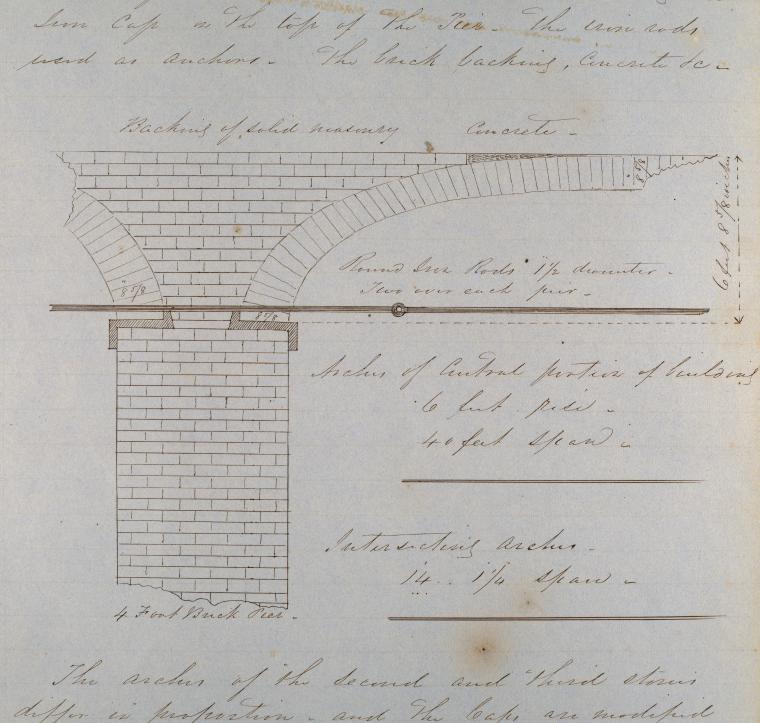 Iron Cap on the top of the Pier. The iron rods
used as anchors. The brick backing, Concrete &c.
Backing of solid masonry
Concrete.
8 5/8
6 feet 8 5/8 inches
Round Iron Rods 1½ diameter.
Two over each pier.
8 5/8
8 5/8
Arches of Central portion of building
6 feet rise.
40 feet span.
Intersecting arches.
14.. 1¼ span.
4 Foot Brick Pier.
The arches of the second and third stories
differ in proportion. and the Caps are modified